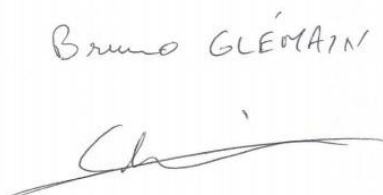 Bruno GLÉMAIN